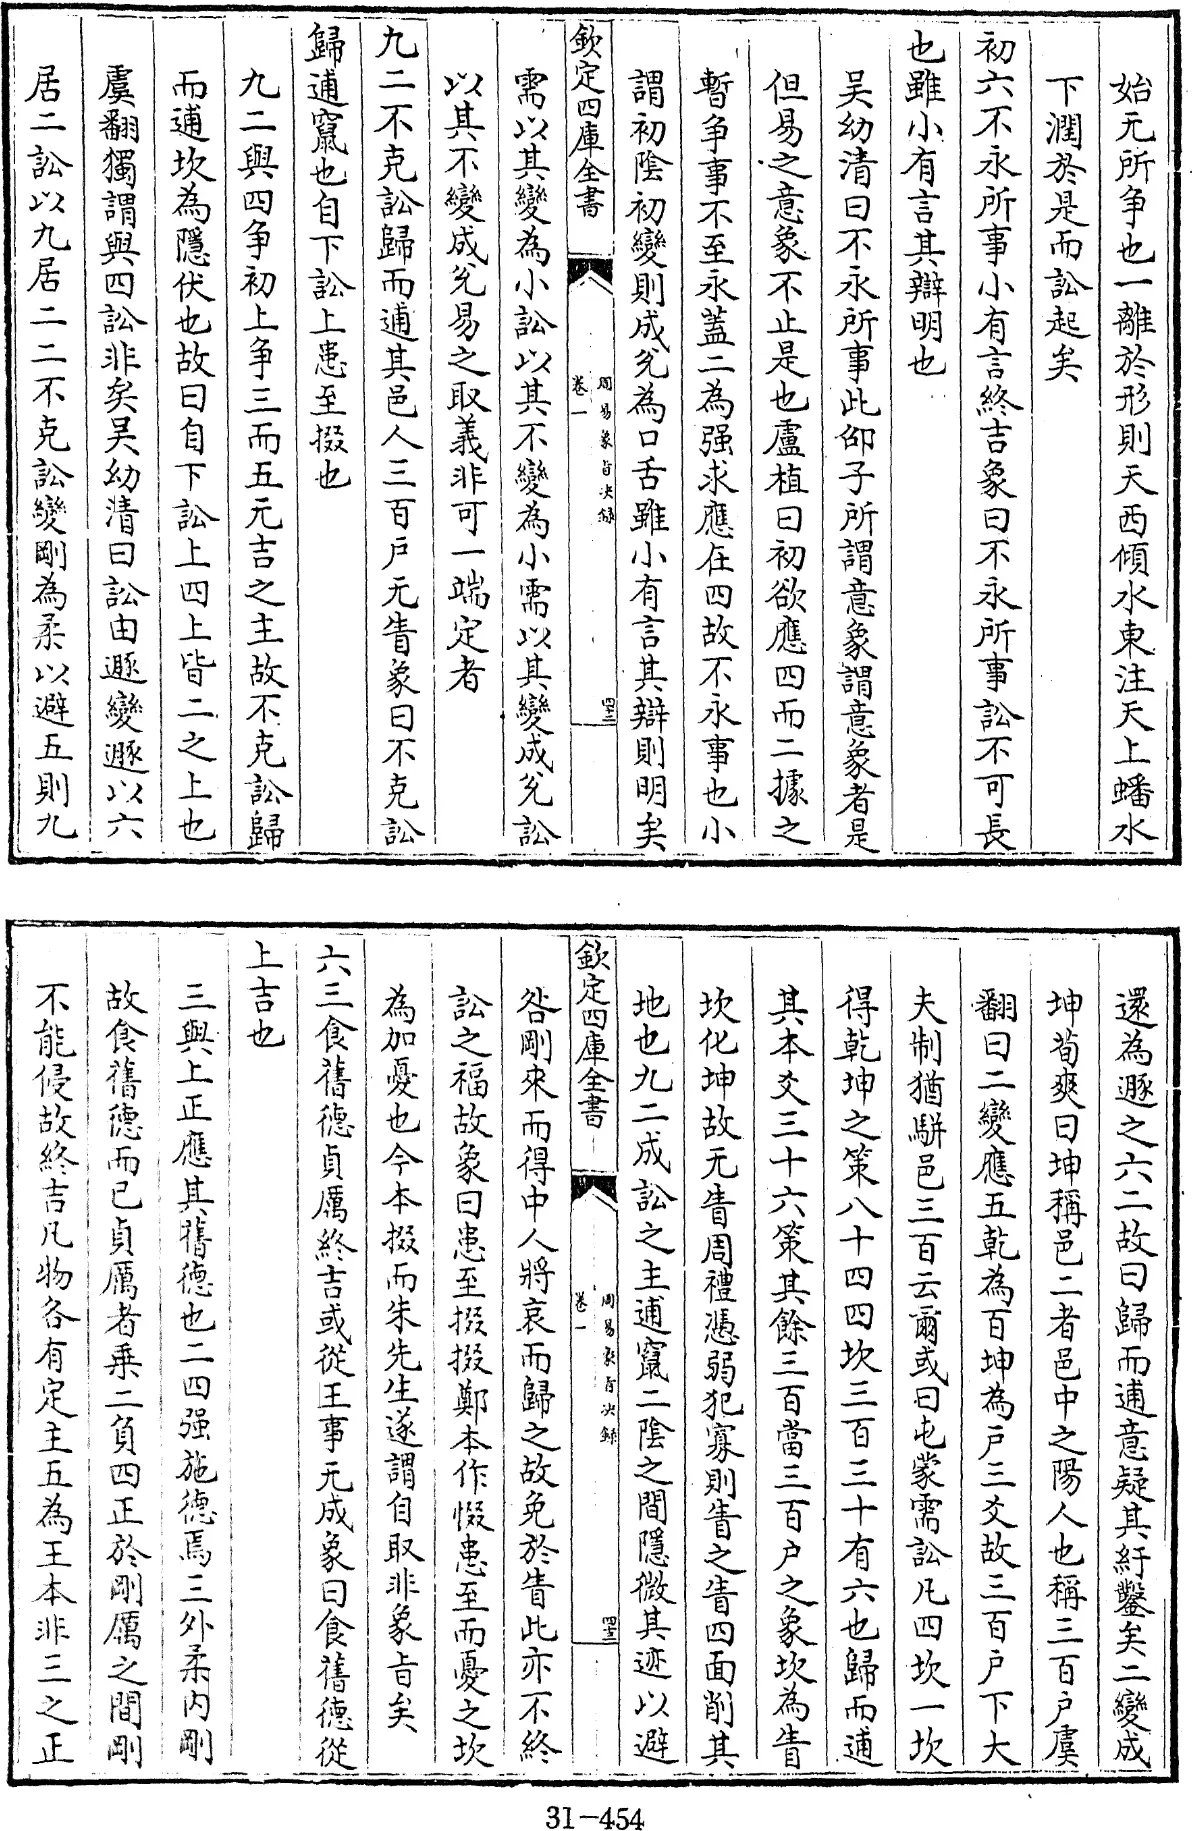 始无所争也一離於形則天西傾水東注天上蟠水
下潤於是而訟起矣
初六不永所事小有言終吉象曰不永所事訟不可長
也雖小有言其辯明也
吴幼清曰不永所事此卲子所謂意象謂意象者是
但易之意象不止是也盧植曰初欲應四而二據之
暫争事不至永蓋二為强求應在四故不永事也小
謂初陰初變則成兊為口舌雖小有言其辯則明矣
欽定四庫全書
周易象旨决録
卷一
四三
需以其變為小訟以其不變為小需以其變成兊訟
以其不變成兊易之取義非可一端定者
九二不克訟歸而逋其邑人三百户无眚象曰不克訟
歸逋竄也自下訟上患至掇也
九二與四争初上争三而五元吉之主故不克訟歸
而逋坎為隱伏也故曰自下訟上四上皆二之上也
虞翻獨謂與四訟非矣吴幼清曰訟由遯變遯以六
居二訟以九居二二不克訟變剛為柔以避五則九
還為遯之六二故曰歸而逋意疑其紆鑿矣二變成
坤荀爽曰坤稱邑二者邑中之陽人也稱三百户虞
翻曰二變應五乾為百坤為户三爻故三百户下大
夫制猶駢邑三百云爾或曰屯蒙需訟凡四坎一坎
得乾坤之策八十四四坎三百三十有六也歸而逋
其本爻三十六策其餘三百當三百户之象坎為眚
坎化坤故无眚周禮馮弱犯寡則眚之眚四面削其
地也九二成訟之主逋竄二陰之間隱微其迹以避
欽定四庫全書
周易象旨决録
卷一
四三
咎剛來而得中人將哀而歸之故免於眚此亦不終
訟之福故象曰患至掇掇鄭本作惙患至而憂之坎
為加憂也今本掇而朱先生遂謂自取非象旨矣
六三食舊德貞厲終吉或從王事无成象曰食舊德從
上吉也
三與上正應其舊德也二四强施德焉三外柔内剛
故食舊德而已貞厲者乗二負四正於剛厲之間剛
不能侵故終吉凡物各有定主五為王本非三之正
31-454